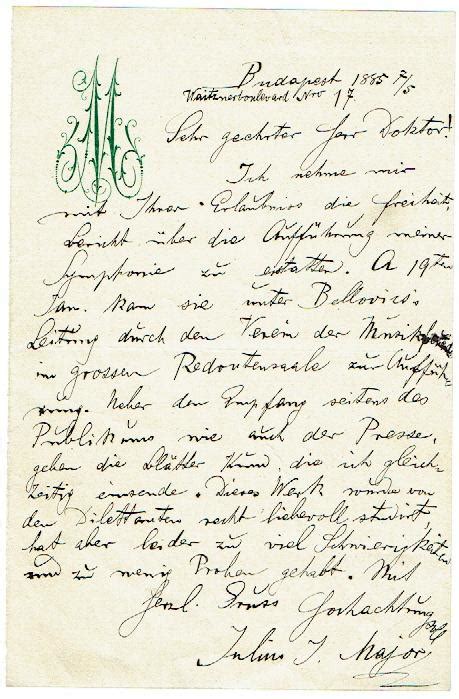 Budapest 1885 2/5
Waitznerboulevard Nro 17
Sehr geehrter Herr Doktor!
Ich nehme mir
mit Ihrer Erlaubniss die Freiheit,
Bericht über die Aufführung meiner
Symphonie zu estatten. A 19ten
Jan. kam sie unter Bellovics's
Leitung durch den Verein der
im grossen Redoutensaale zur Auffüh-
rung. Ueber den Empfang seitens des
Publikums wie auch der Presse,
geben die Blätter Kund, die ich gleich-
zeitig einsende. Dieses Werk wurde von
den Dilettanten recht liebevoll studirt,
hat aber leider zu viel Schwierigkeiten
und zu wenig Proben gehabt. Mit
Herzl. Gruss Hochachtung
Julius J. Major